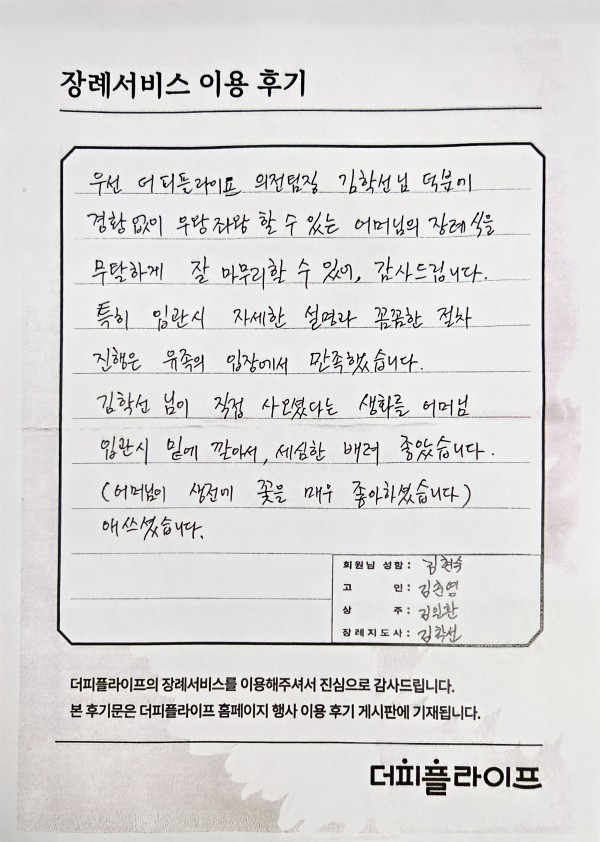 장례서비스 이용 후기
우선 더피플라이프 의전팀장 김학선님 덕분에
경황없이 우왕좌왕 할 수 있는 어머님의 장례식을
무탈하게 잘 마무리할 수 있어, 감사드립니다.
특히 입관시 자세한 설명과 꼼꼼한 절차
진행은 유족의 입장에서 만족했습니다.
김학선 님이 직접 사오셨다는 생화를 어머님
입관시 밑에 깔아서, 세심한 배려 좋았습니다.
(어머님이 생전에 꽃을 매우 좋아하셨습니다)
애쓰셨습니다.
회원님 성함: 김현숙
고 인: 김춘영
상 주: 김원환
장례지도사: 김학선
더피플라이프의 장례서비스를 이용해주셔서 진심으로 감사드립니다.
본 후기문은 더피플라이프 홈페이지 행사 이용 후기 게시판에 기재됩니다.
더피플라이프